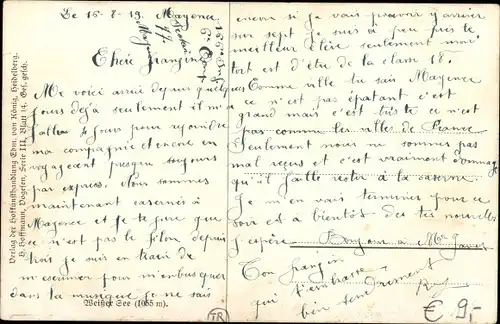 Le 15-8-19. Mayence
Me voici arrivé depuis quelques
jours déjà seulement il m'a
fallu 4 jours pour rejoindre
ma compagnie et encore en
voyageant presque toujours
par express. Nous sommes
maintenant casernés à
Mayence et je te jure que
ce n'est pas le filon, depuis
trois je suis en train de
m'escrimer pour m'embusquer
dans la musique je ne sais
Weißer See (1055 m).
Verlag der Hofkunsthandlung Edm. von König, Heidelberg.
H. Hoffmann, Vogesen, Serie III, Blatt 14. Ges. gesch.
encore si je vais pouvoir y arriver
sur sept je suis à peu près le
meilleur élève seulement mon
tort est d'être de la classe 18.
Comme ville tu sais Mayence
ce n'est pas épatant c'est
grand mais c'est triste ce n'est
pas comme les villes de France
Seulement nous ne sommes pas
mal reçus et c'est vraiment dommage
qu'il faille rester à la caserne
Je en vais terminer pour ce
soir et à bientôt de tes nouvelles
j'espère. Bonjour à
Ton frangin
qui t'embrasse
bien tendrement
TR
€ 9,-